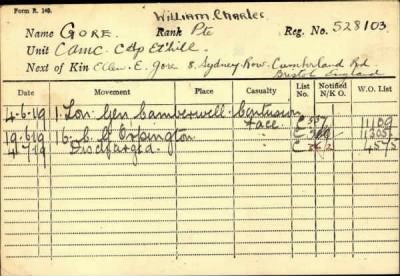 Form R. 149.
William Charles
Name Gore. Rank Pte Reg. No. 528103.
Unit C.A.M.C. Cdp Etchill.
Next of Kin Ellen. E. Gore 8. Sydney Row. Cumberland Rd
Bristol England
Date Movement Place Casualty List No. Notified N/K O. W.O. List
4-6-19 1. Lon. Gen Camberwell Contusion C 337 11109
face.
19-6-19 16. C. G. Orpington C 11305
4-7-19 Discharged. C 362 4575